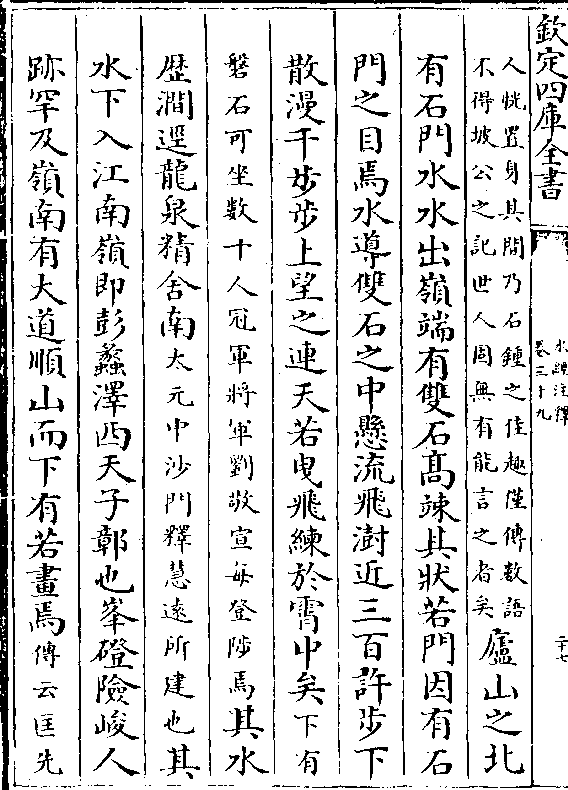 欽定四庫全書
水經注釋
卷三十九
二十七
人恍置身其間乃石鍾之佳趣僅傳數語
不得坡公之記世人固無有能言之者矣
廬山之北
有石門水水出嶺端有雙石髙竦其狀若門因有石
門之目焉水導雙石之中懸流飛澍近三百許步下
散漫千步步上望之連天若曵飛練於霄中矣下有
磐石可坐數十人冠軍將軍劉敬宣毎登陟焉其水
歴澗逕龍泉精舍南太元中沙門釋慧遠所建也其
水下入江南嶺即彭蠡澤西天子鄣也峯磴險峻人
跡罕及嶺南有大道順山而下有若畫焉傳云匡先